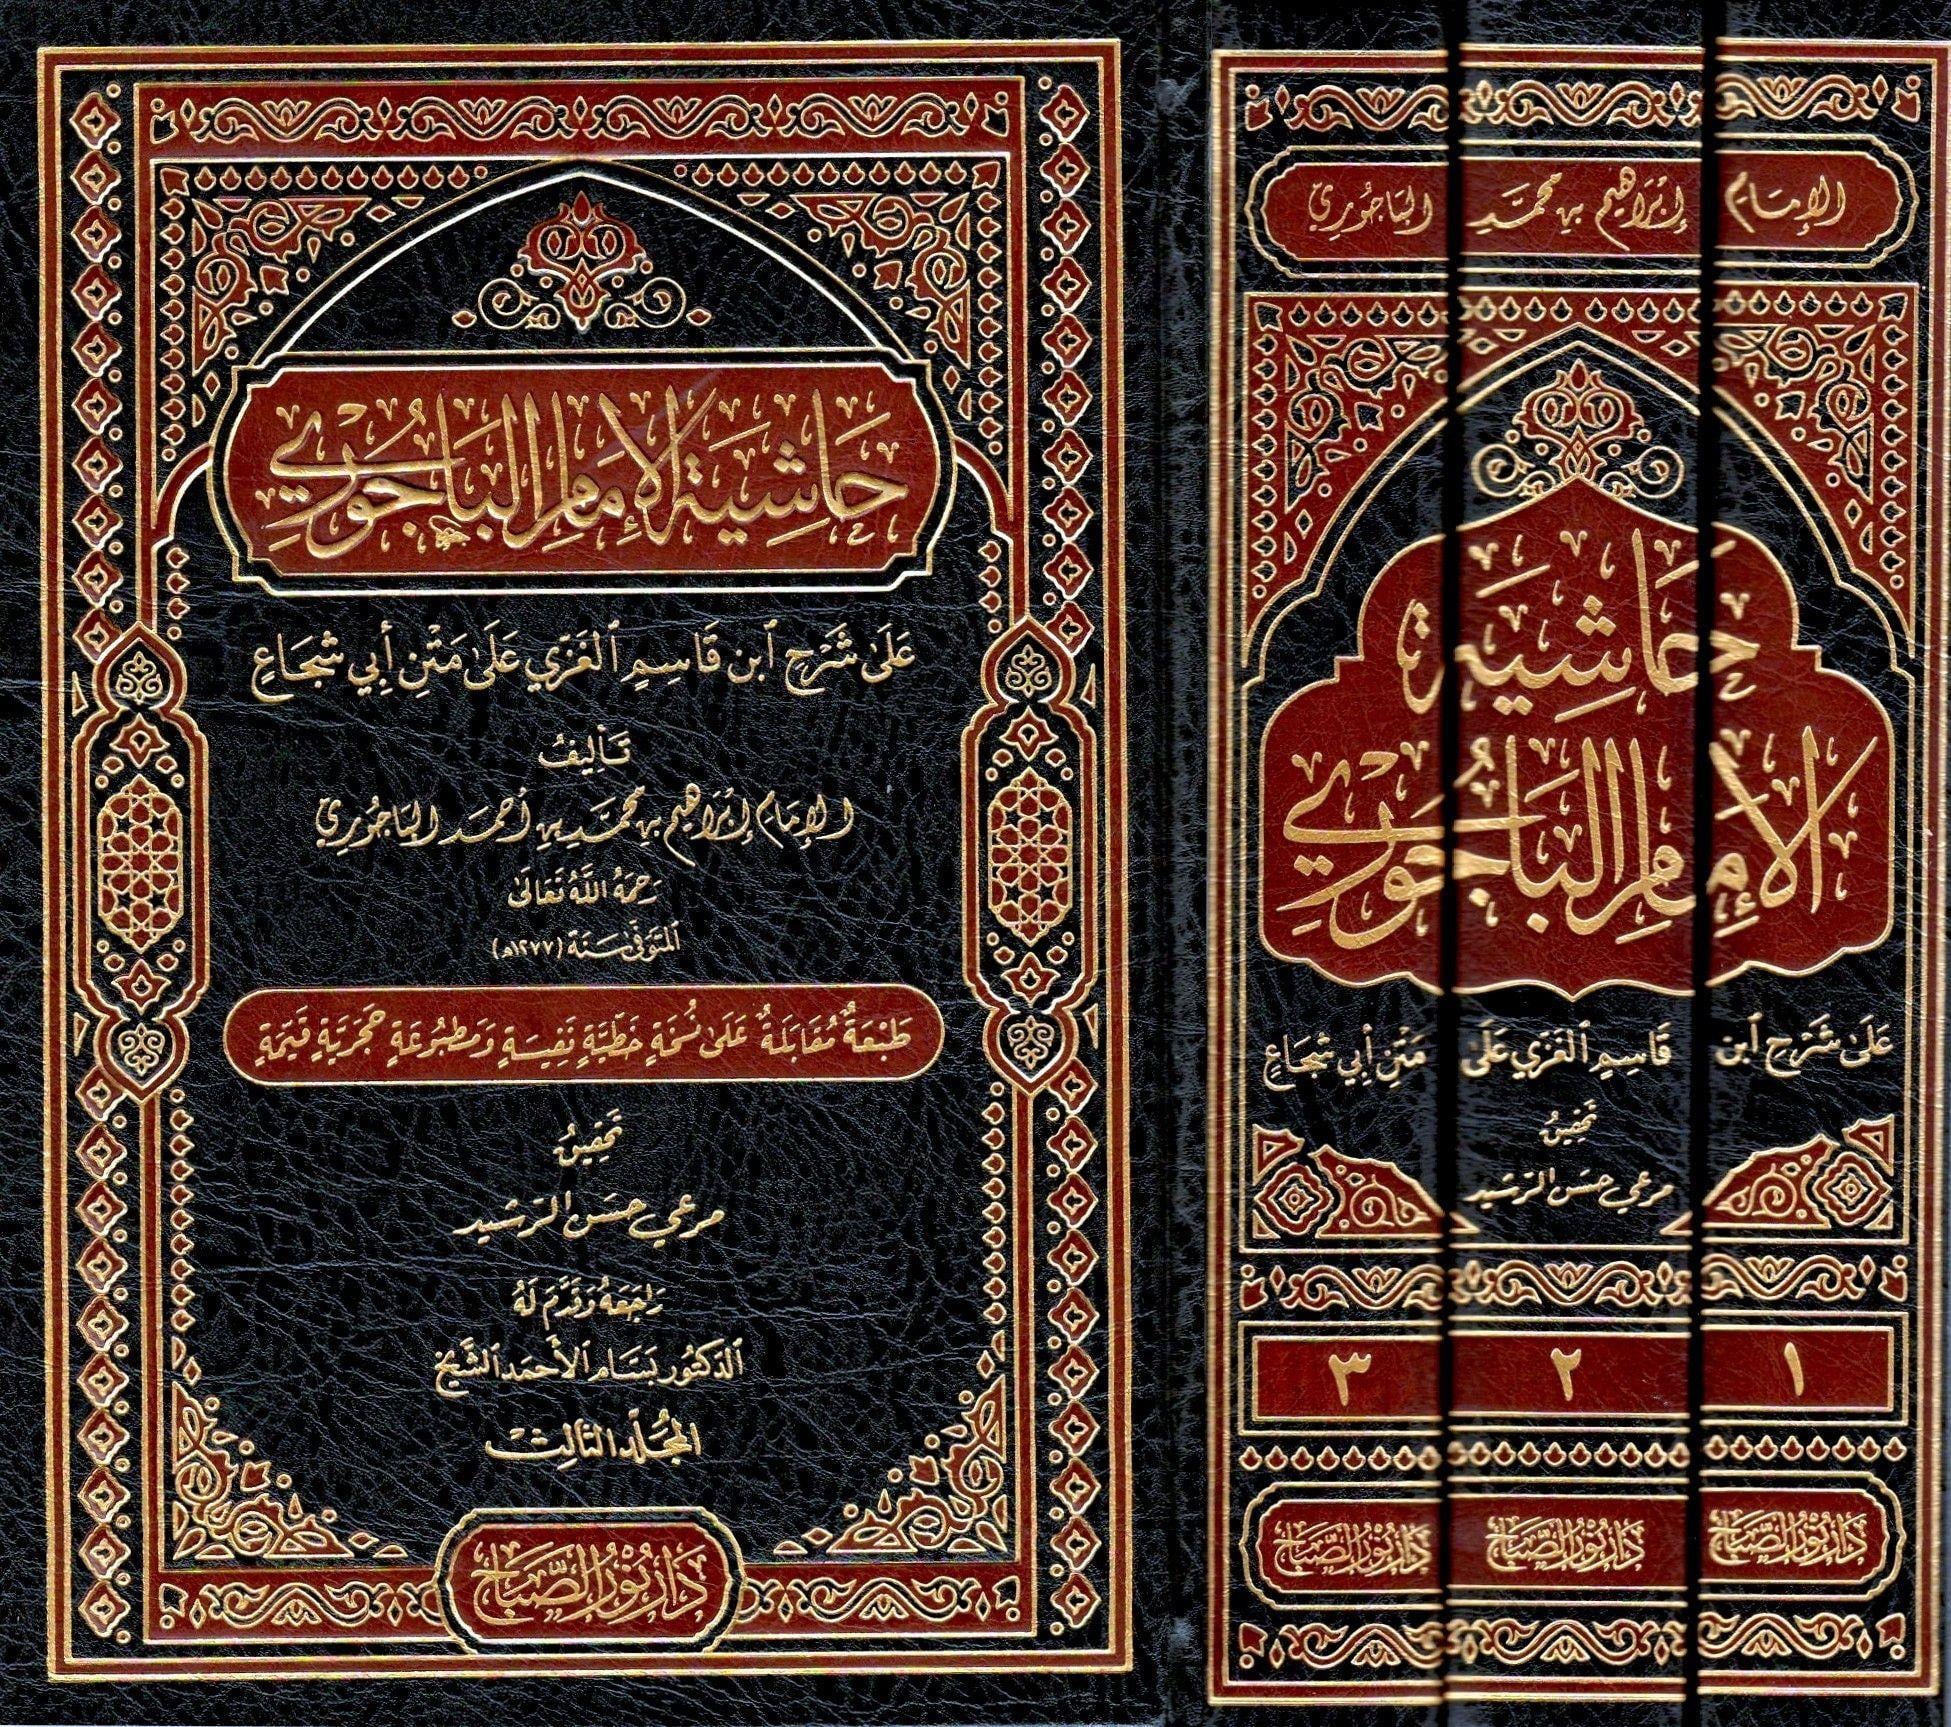 حَاشِيَةُ الإِمَامِ البَاجُورِي
عَلَى شَرْحِ ابْنِ قَاسِمٍ الغَزِّي عَلَى مَتْنِ أَبِي شُجَاعٍ
تَأْلِيفُ
الإِمَامِ إِبْرَاهِيمَ بْنِ مُحَمَّدِ بْنِ أَحْمَدَ البَاجُورِيِّ
رَحِمَهُ اللَّهُ تَعَالَى
المُتَوَفَّى سَنَة (١٢٧٧هـ)
طَبْعَةٌ مُقَابَلَةٌ عَلَى نُسْخَةٍ خَطِّيَّةٍ نَفِيسَةٍ وَمَطْبُوعَةٍ حَجَرِيَّةٍ قَيِّمَةٍ
تَحْقِيقُ
مرعي حسن الرشيد
رَاجَعَهُ وَقَدَّمَ لَهُ
الدكتور بسام الأحمد الشيخ
المُجَلَّد الثَّالِث
دَار نُوْر الصَّبَاح
الإِمَامِ إِبْرَاهِيم بْن مُحَمَّد البَاجُورِيّ
حَاشِيَة
الإِمَامِ البَاجُورِي
عَلَى شَرْحِ ابْنِ قَاسِمٍ الغَزِّي عَلَى مَتْنِ أَبِي شُجَاعٍ
تحقيق
مرعي حسن الرشيد
١ ٢ ٣
دَار نُوْر الصَّبَاح دَار نُوْر الصَّبَاح دَار نُوْر الصَّبَاح